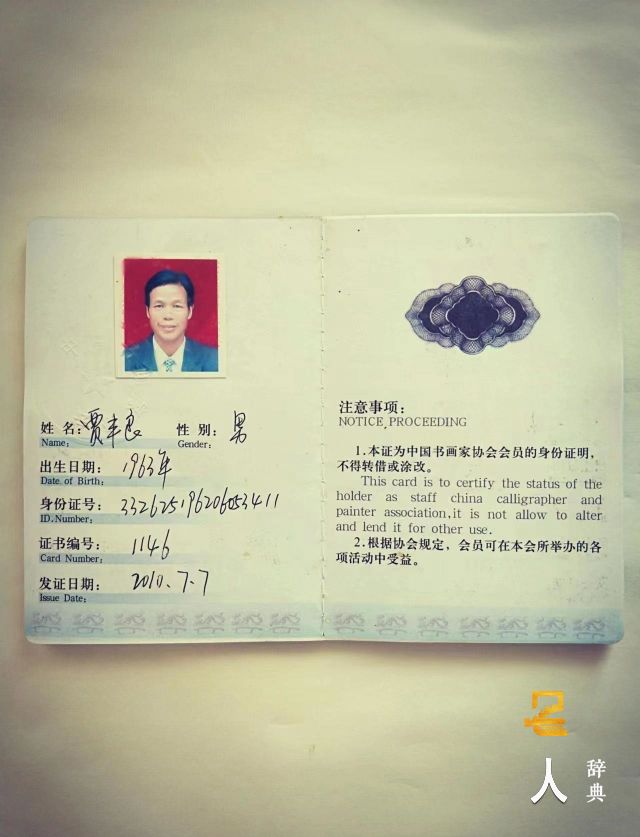 姓 名：贾丰良 性 别：男
Name: Gender:
出生日期：1963年
Date of Birth:
身份证号：332625196206053411
ID.Number:
证书编号：1146
Card Number:
发证日期：2010.7.7
Issue Date:
注意事项：
NOTICE PROCEEDING
1.本证为中国书画家协会会员的身份证明，
不得转借或涂改。
This card is to certify the status of the
holder as staff china calligrapher and
painter association,it is not allow to alter
and lend it for other use.
2.根据协会规定，会员可在本会所举办的各
项活动中受益。
名
人 辞典